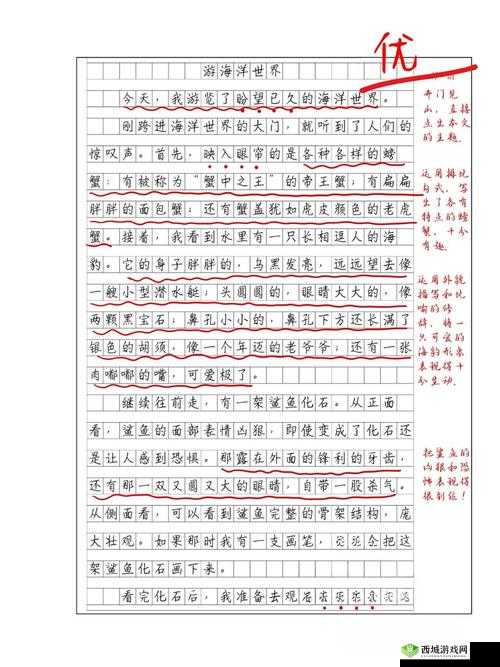 优
游海洋世界
今天，我游览了盼望已久的海洋世界。
刚跨进海洋世界的大门，就听到了人们的
惊叹声。首先，映入眼帘的是各种各样的螃
蟹：有被称为“蟹中之王”的帝王蟹；有扁扁
胖胖的面包蟹；还有蟹盖犹如虎皮颜色的老虎
蟹。接着，我看到水里有一只长相逗人的海
豹。它的身子胖胖的，乌黑发亮，远远望去像
一艘小型潜水艇；头圆圆的，眼睛大大的，像
两颗黑宝石；鼻孔小小的，鼻孔下方还长满了
银色的胡须，像一个年迈的老爷爷；还有一张
肉嘟嘟的嘴，可爱极了。
继续往前走，有一架鲨鱼化石。从正面
看，鲨鱼的面部表情凶狠，即使变成了化石还
是让人感到恐惧。那露在外面的锋利的牙齿，
还有那一双又圆又大的眼睛，自带一股杀气。
从侧面看，可以看到鲨鱼完整的骨架结构，庞
大壮观。如果那时我有一支画笔，会把这
架鲨鱼化石画下来。
看完化石后，我准备去观
开门见
山，直接
点出本文
的主题。
运用排比
句式，写
出了各有
特点的螃
蟹，十分
有趣。
运用外貌
描写和比
喻的修
辞，将一
只可爱的
海豹形象
表现得十
分生动。
把鲨鱼的
凶狠和恐
怖表现得
很到位！
西城游戏网